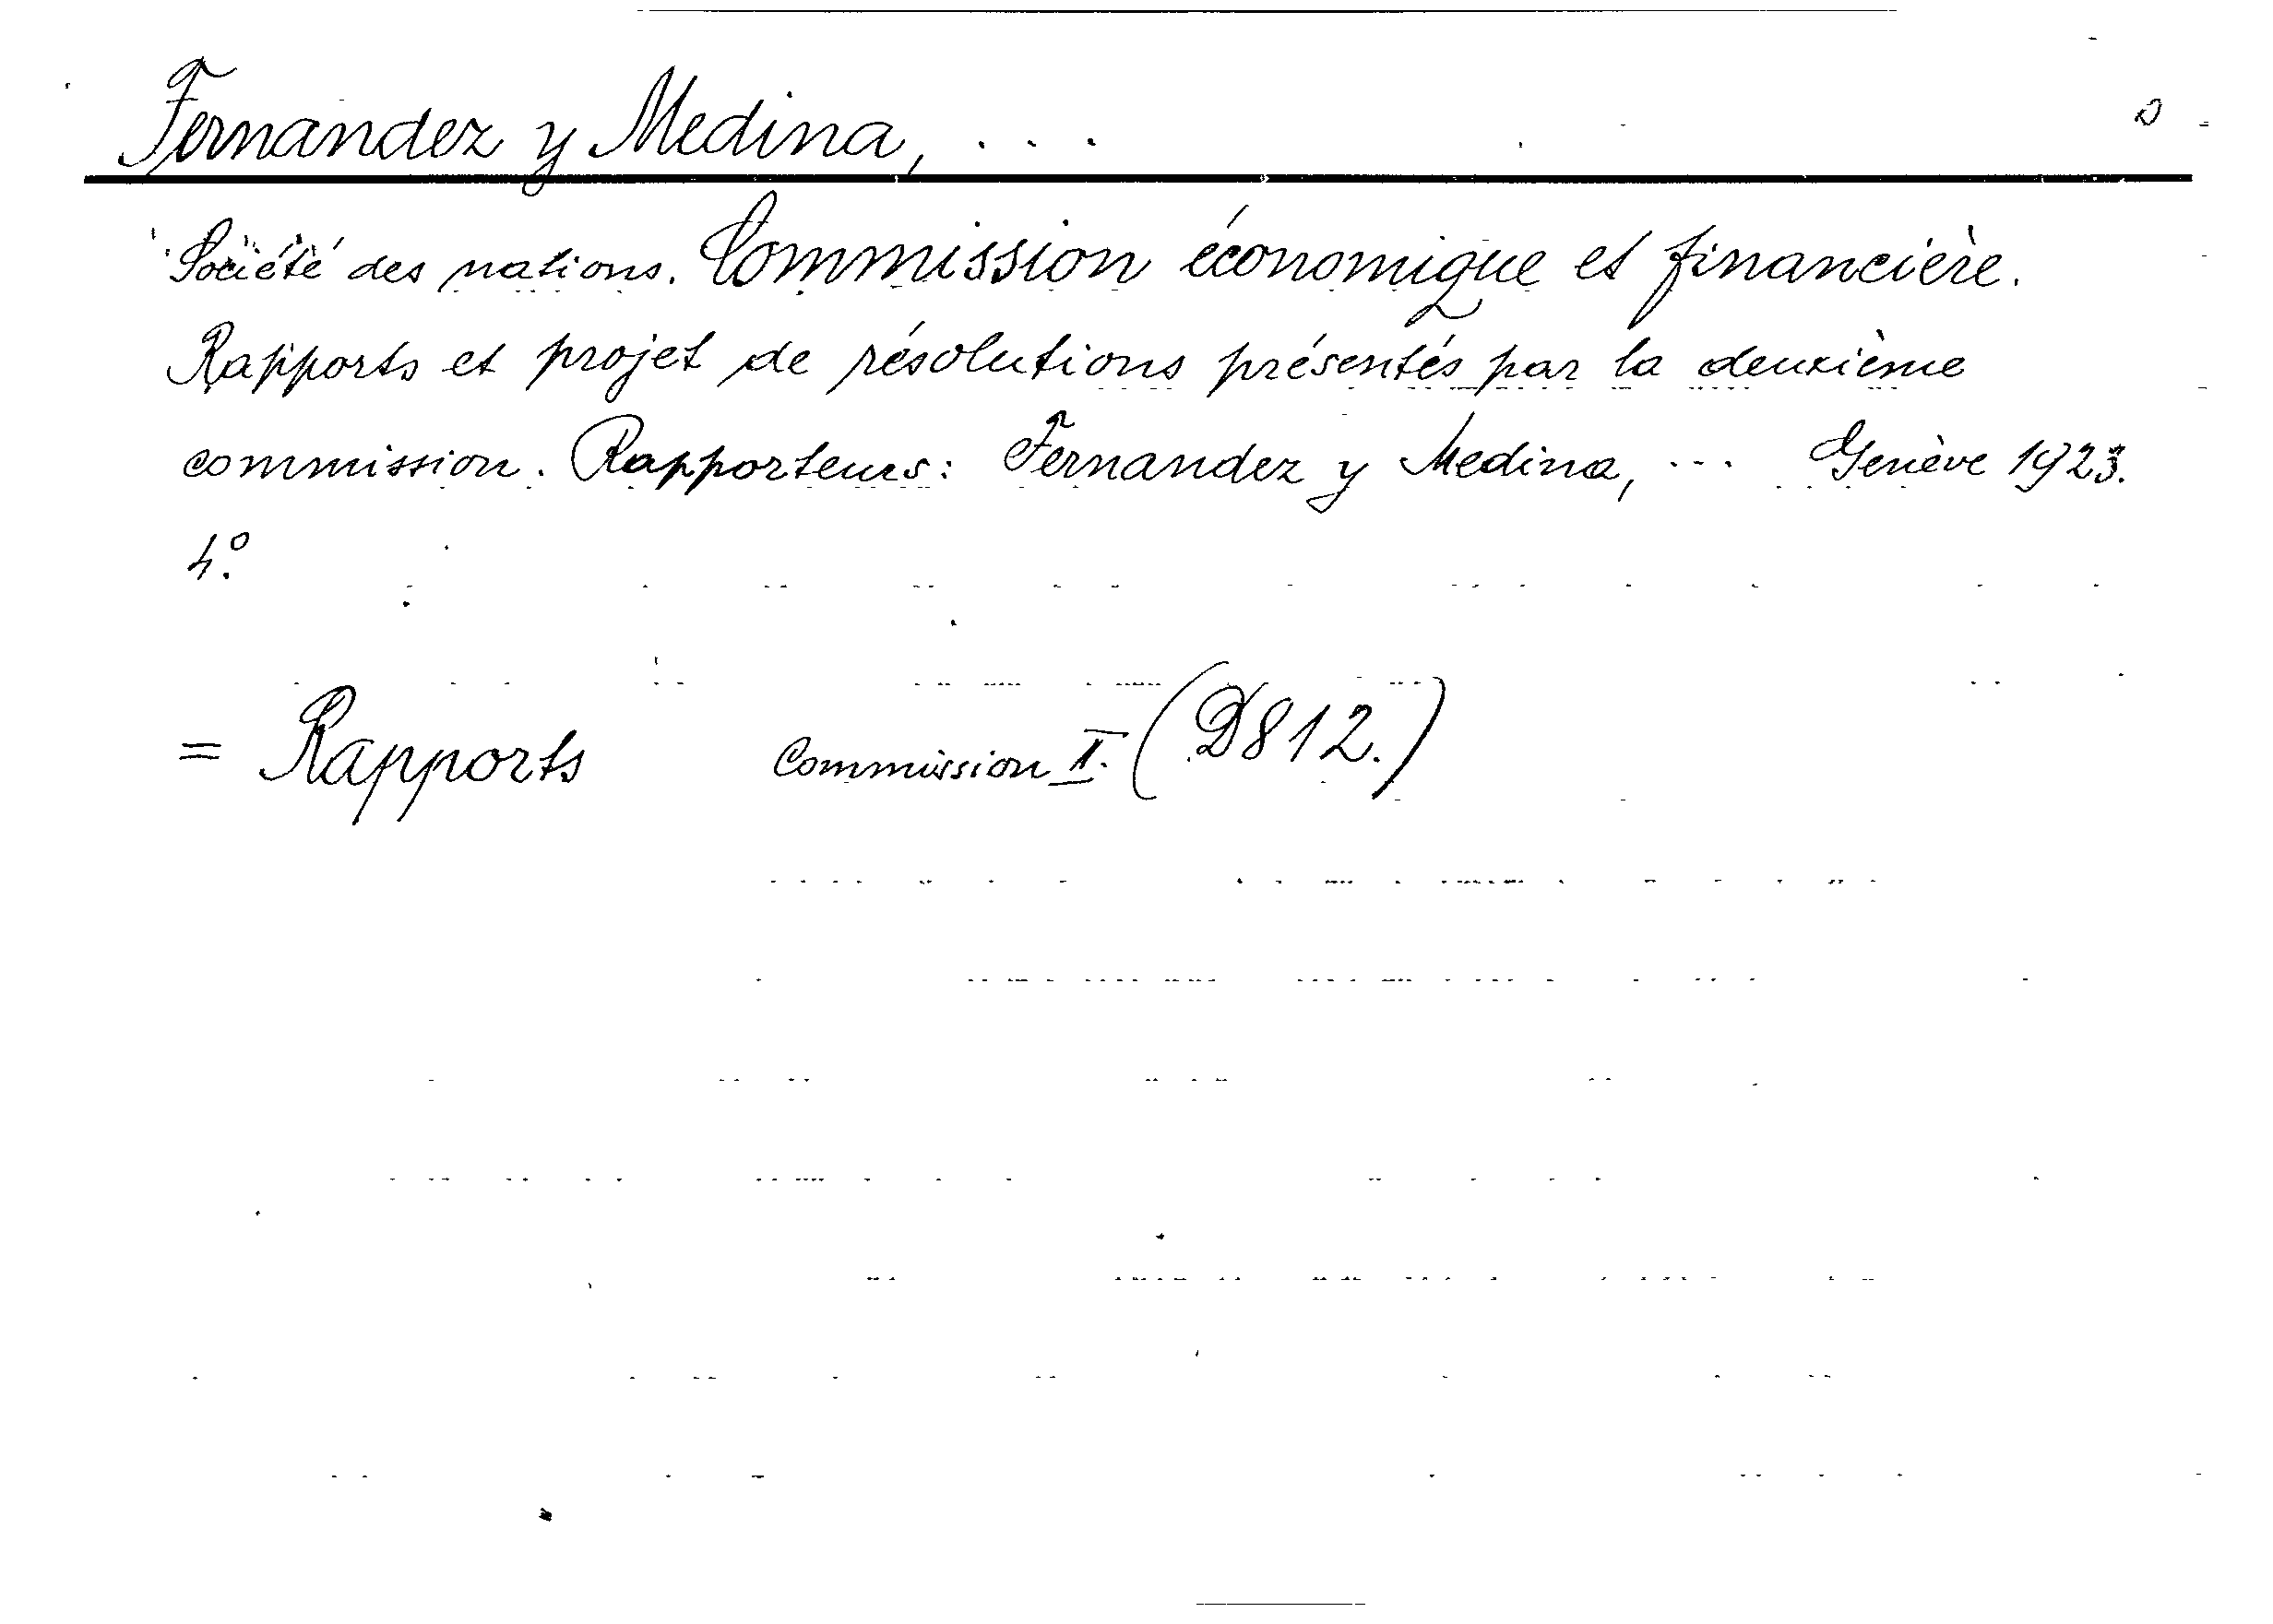 Fernandez y Medina, ...
Société des nations. Commission économique et financière.
Rapports et projet de résolutions présentés par la deuxième
commission. Rapporteurs: Fernandez y Medina, ... Genève 1923.
4.º
= Rapports Commission II. (D812.)